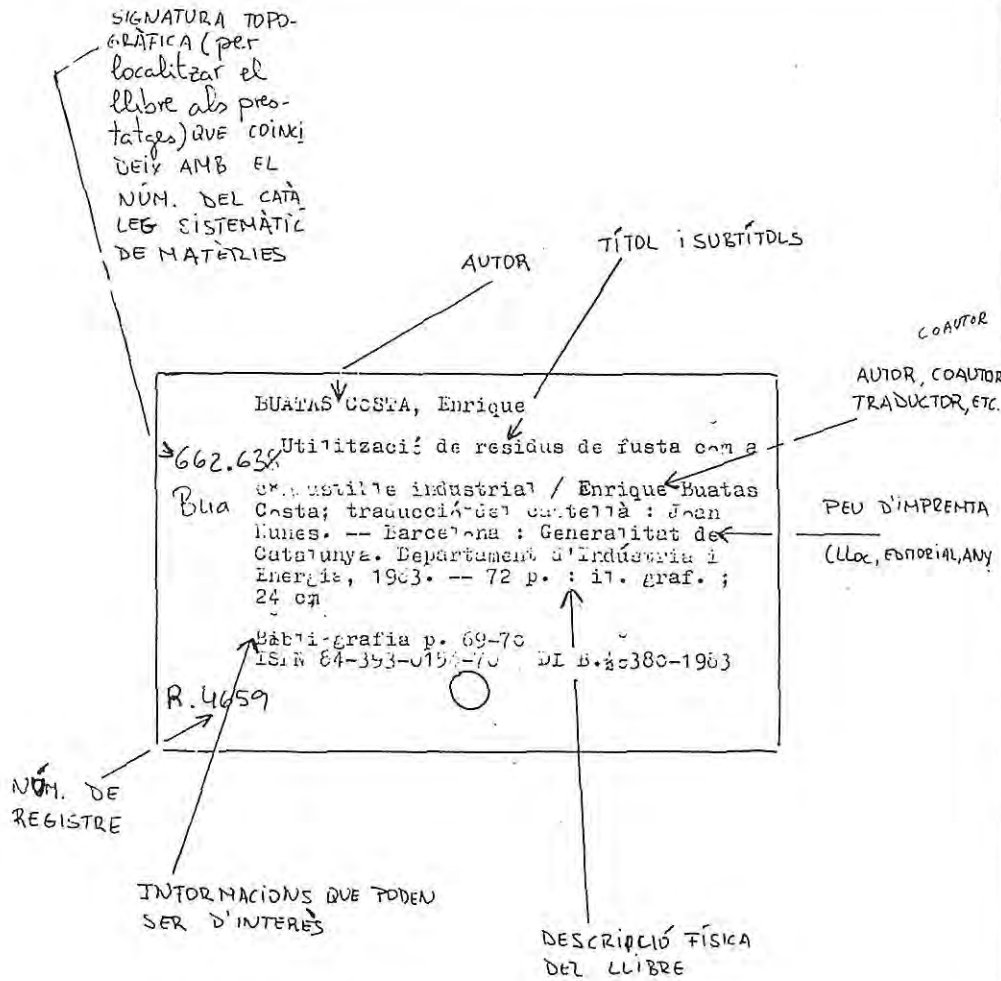 SIGNATURA TOPO-
GRÀFICA (per
localitzar el
llibre als pres-
tatges) QUE COINCI
DEIX AMB EL
NÚM. DEL CATÀ
LEG SISTEMÀTIC
DE MATÈRIES
AUTOR
TÍTOL i SUBTÍTOLS
COAUTOR
AUTOR, COAUTOR
TRADUCTOR, ETC.
BUATAS COSTA, Enrique
662.638 Utilització de residus de fusta com a
Bua
industrial / Enrique Buatas
Costa; traducció del castellà : Joan
Nunes. -- Barcelona : Generalitat de
Catalunya. Departament d'Indústria i
Energia, 1983. -- 72 p. : il. graf. ;
24 cm
Bibliografia p. 69-70
ISBN 84-393- DL B.
R.4659
PEU D'IMPREMTA
(LLOC, EDITORIAL, ANY
NÚM. DE
REGISTRE
INFORMACIONS QUE PODEN
SER D'INTERÈS
DESCRIPCIÓ FÍSICA
DEL LLIBRE